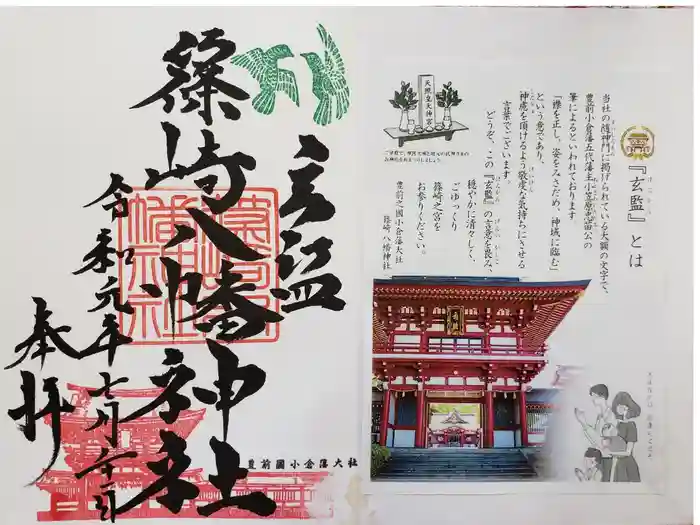 玄鑑
篠崎八幡神社
令和元年七月
奉拝
豊前國小倉藩大社
『玄監』とは
当社の随神門に掲げられている大額の文字で、
豊前小倉藩五代藩主小笠原忠苗公の
筆によるといわれております
「誰を正し、姿をみさだめ、神域に臨む」
という意であり、
神慮を頂けるよう敬虔な気持ちにさせる
言葉でございます。
どうぞ、この『玄監』の言意を畏み、
穏やかに清々しく、
ごゆっくり
篠崎之宮を
お参りください。
豊前之国小倉藩大社
篠崎八幡神社
天照皇大神宮
玄監